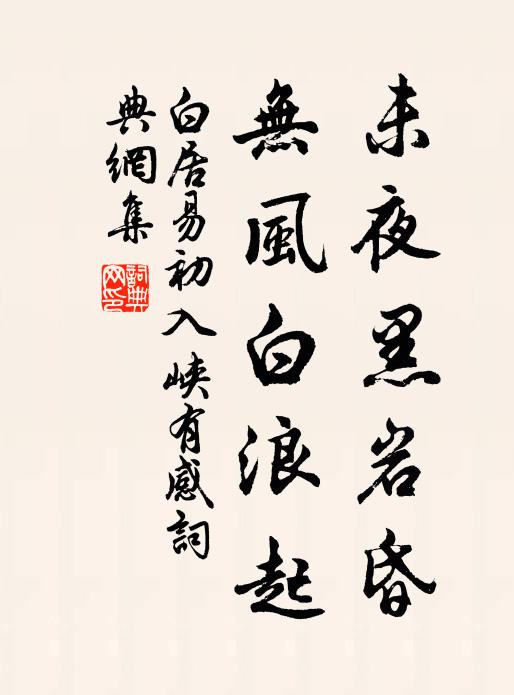 未夜黑岩昏
無風白浪起
白居易初入峽有感詞
典網集
詞典網印